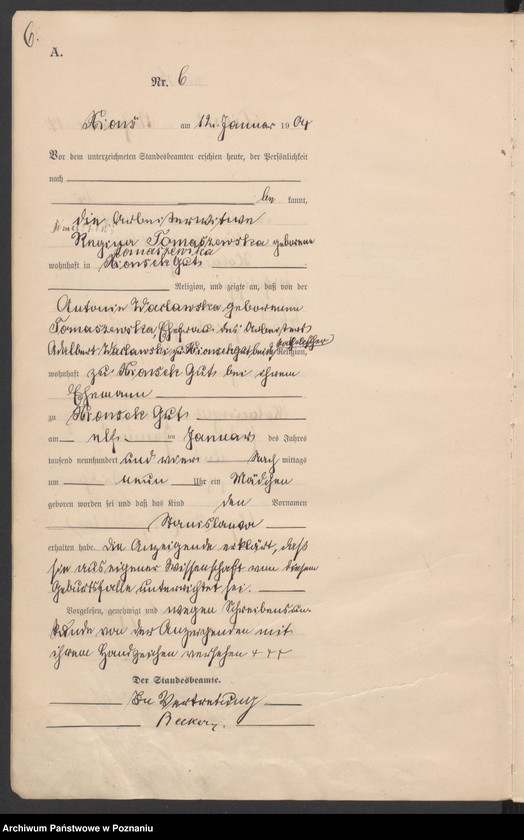 6.
A.
Nr. 6
Xions am 12ten Januar 1904
Vor dem unterzeichneten Standesbeamten erschien heute, der Persönlichkeit
nach
be kannt,
die Arbeiterwitwe
Regina Tomaszewska geborene
Tomaszewska
wohnhaft in Xionsek Gut
Religion, und zeigte an, daß von der
Antonie Waclawska, geborenen
Tomaszewska, Ehefrau des Arbeiters
Adalbert Waclawski zu Xionsek Gut, beide katholischer Religion,
wohnhaft zu Xionsek Gut bei ihrem
Ehemann
zu Xionsek Gut
am elf ten Januar des Jahres
tausend neunhundert und vier Nach mittags
um neun Uhr ein Mädchen
geboren worden sei und daß das Kind den Vornamen
Stanislawa
erhalten habe. Die Anzeigende erklärt, daß
sie aus eigener Wissenschaft von diesem
Geburtsfalle unterrichtet sei.
Vorgelesen, genehmigt und wegen Schreibensun-
kunde von der Anzeigenden mit
ihrem Handzeichen versehen + + +
Der Standesbeamte.
In Vertretung
Becker
Archiwum Państwowe w Poznaniu